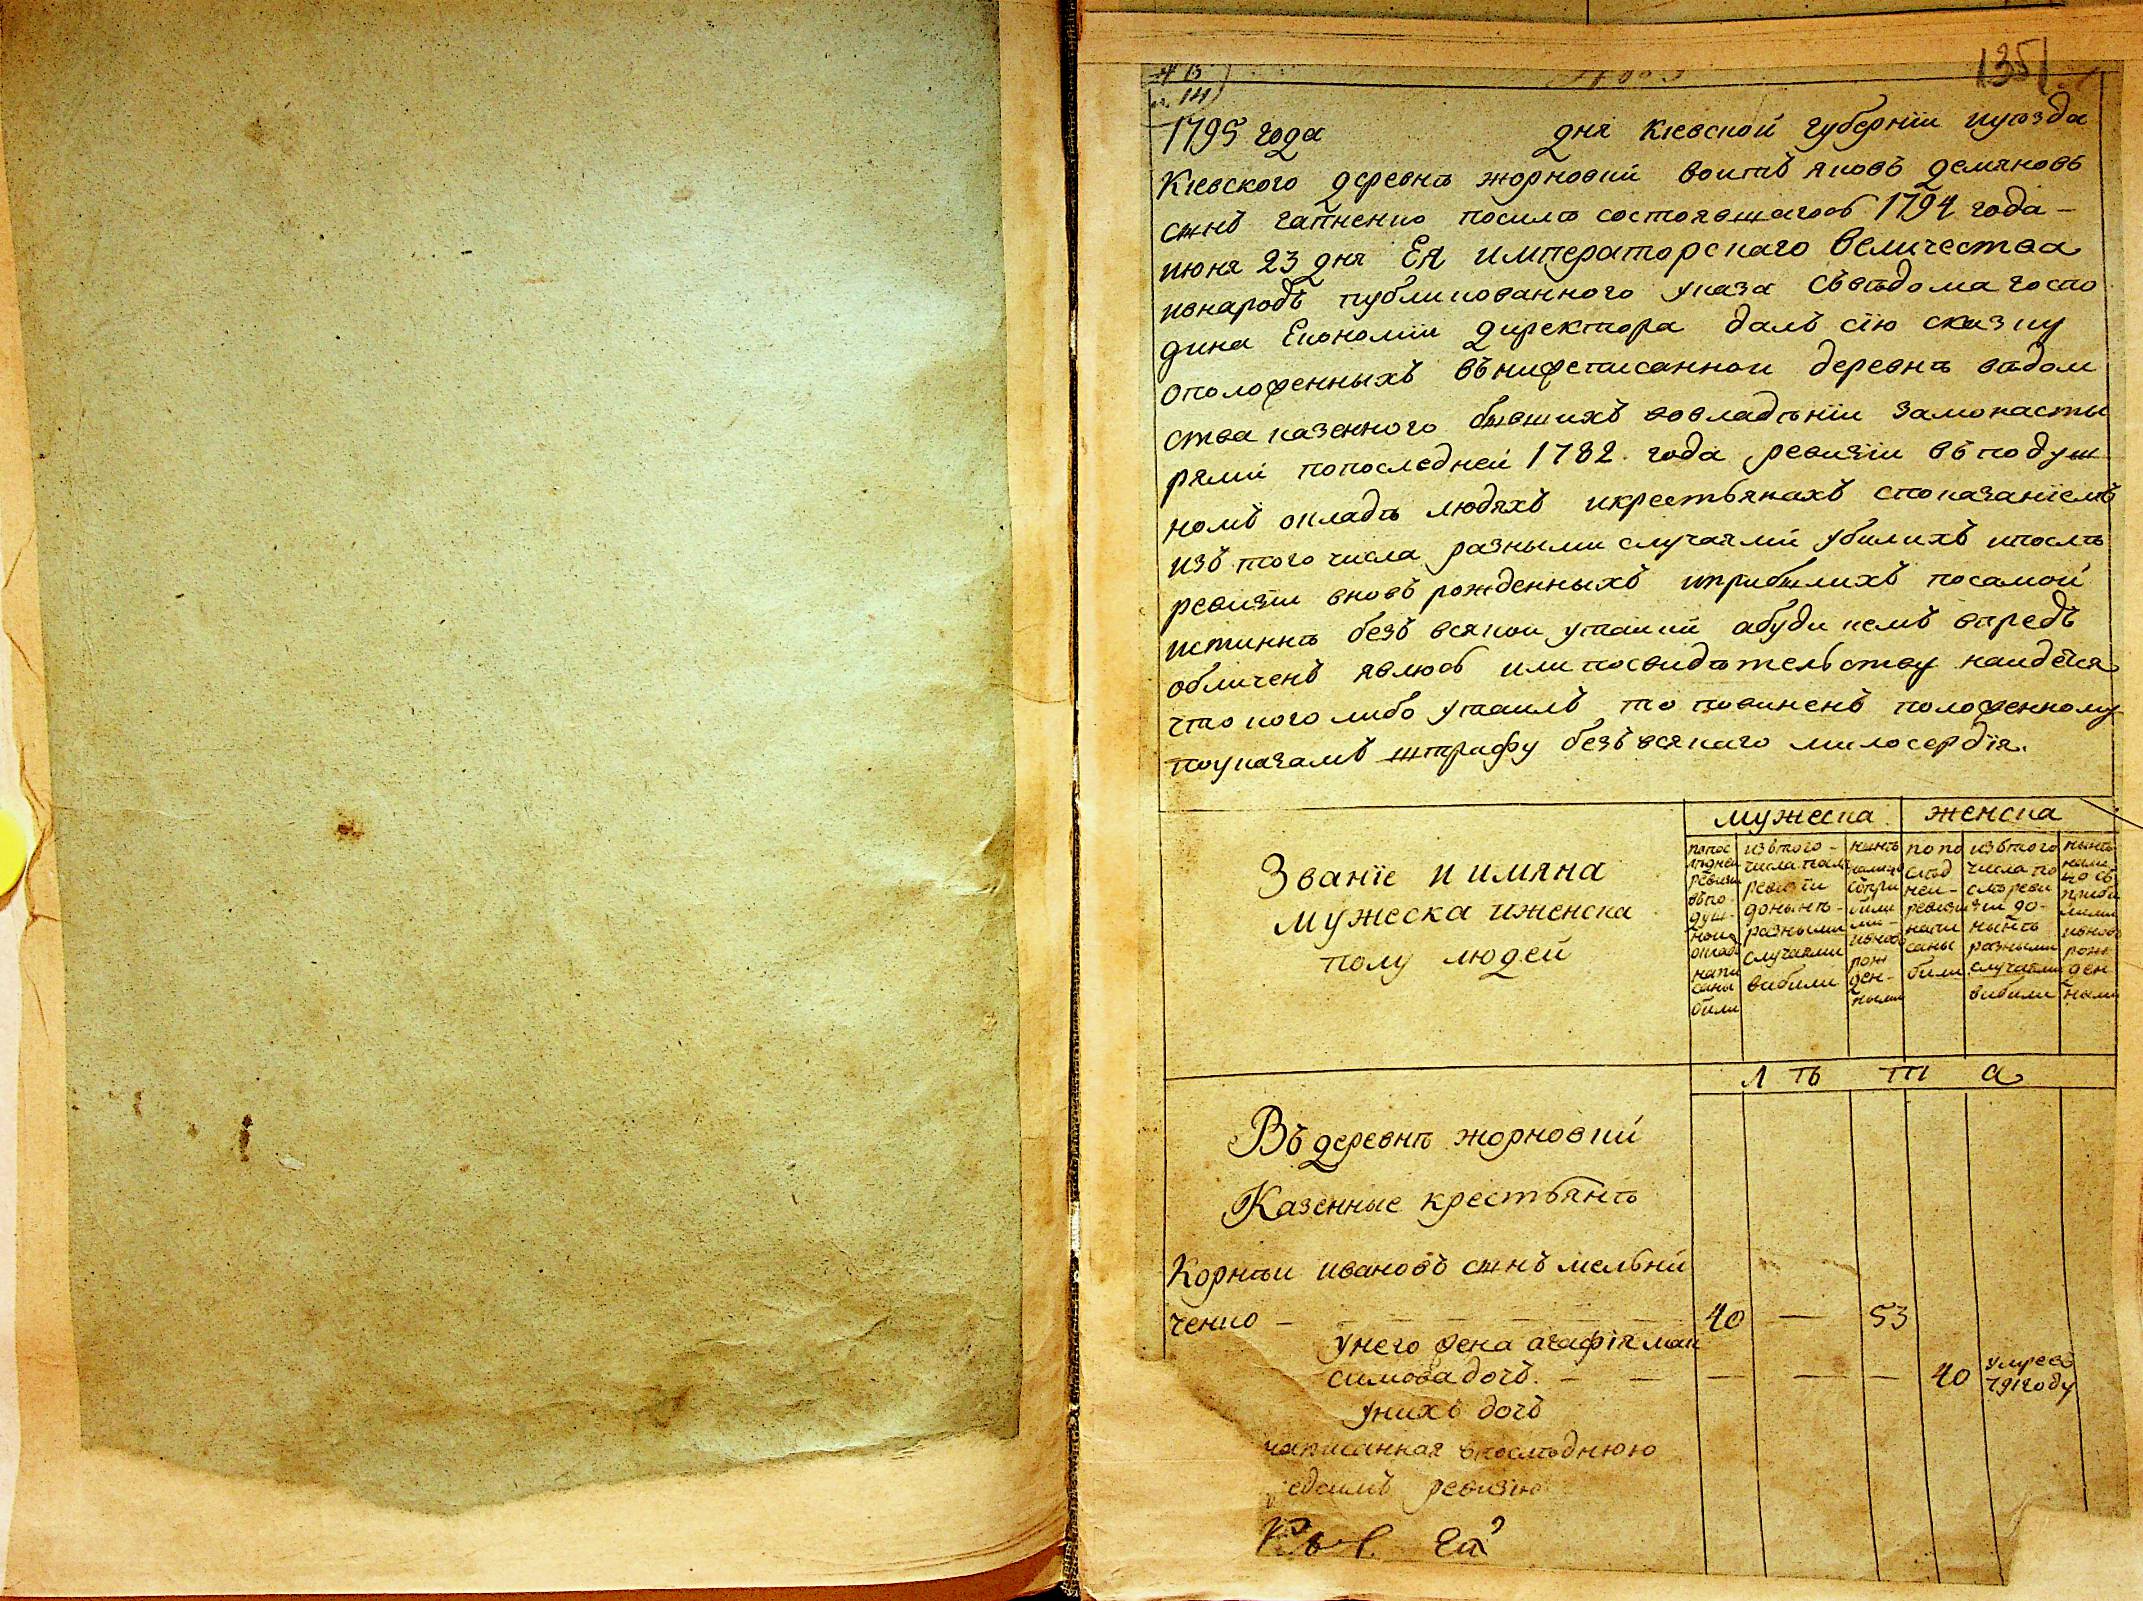 1351
1795 года дня Киевской губернїи иуѣзда
Киевского деревнѣ жорновки воитъ яковъ демяновъ
сынъ гапненко посилѣ состоявшагось 1794 года –
июня 23 дня Ея императорскаго величества
ивнародъ публикованного указа съвѣдома госпо
дина Економїи директора далъ сїю сказку
оположенныхъ въвишеписаннои деревнѣ вѣдом
ства казенного бывшихъ вовладѣнїи замонасты
рями попоследней 1782 года ревизїи въподуш
номъ окладѣ людяхъ икрестьянахъ спотказанїемъ
изъ того числа разными случаями убилихъ ипослѣ
ревизїи вновъ рожденныхъ иприбылихъ посамой
истиннѣ безъ всякои утаики абуди кемъ впредъ
обличенъ явлюсь или посвидѣтельству наидется
что кого либо утаилъ то повиненъ положенному
поуказамъ штрафу безъ всякаго милосердїя.
мужеска женска
Званїе и имяна
мужеска иженска
полу людей
попос
лѣдней
ревизи
въпо-
душ-
ном
оклад
напи
саны
били
изътого –
числа посл
ревизїи
донынѣ –
разными
случаями
вибили
нынѣ
налицо
съпри
били
ми
ивновь
рож
ден-
ными
по по
слѣд
ней –
ревизи
напи
саны
били
изътого
числа по
слѣ реви
зїи до-
нынѣ
разными
случаями
вибили
нынѣ
нали
цо съ
приби
лими
ивновь
рож
ден
ными
лѣта
Въ деревнѣ жорновки
Казенные крестьянѣ
Корнѣи ивановъ сынъ мельни
ченко – 40 — 53
унего жена агафїя мак
симова дочь. – — — — — 40 умре въ
791 году
унихъ дочь
написанная впослѣднюю
ревизїю